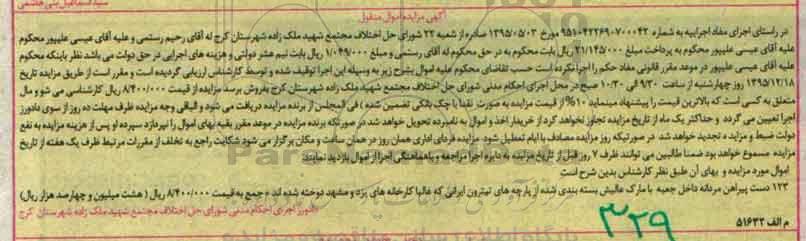 سید اسماعیل بنی هاشمی
آگهی مزایده اموال منقول
در راستای اجرای مفاد اجراییه به شماره ۹۵۱۰۴۲۲۶۹۰۷۰۰۰۴۲ مورخ ۱۳۹۵/۰۵/۰۳ صادره از شعبه ۲۲ شورای حل اختلاف مجتمع شهید ملک زاده شهرستان کرج له آقای رحیم رستمی و علیه آقای عیسی علیپور محکوم
علیه آقای عیسی علیپور محکوم به پرداخت مبلغ ۲۱/۱۴۵/۰۰۰ ریال بابت محکوم به در حق محکوم له آقای رستمی و مبلغ ۱/۰۴۹/۰۰۰ ریال بابت نیم عشر دولتی و هزینه های اجرایی در حق دولت می باشد نظر باینکه محکوم
علیه آقای عیسی علیپور در موعد مقرر قانونی مفاد حکم را اجرا نکرده است حسب تقاضای محکوم علیه اموال بشرح زیر به وسیله این اجرا توقیف شده و توسط کارشناس ارزیابی گردیده است و مقرر است از طریق مزایده تاریخ
۱۳۹۵/۱۲/۱۸ روز چهارشنبه از ساعت ۹/۳۰ الی ۱۰/۳۰ صبح در محل اجرای احکام مدنی شورای حل اختلاف مجتمع شهید ملک زاده شهرستان کرج بفروش برسد مزایده از قیمت ۸/۴۰۰/۰۰۰ ریال کارشناسی می شو و مال
متعلق به کسی است که بالاترین قیمت را پیشنهاد مینماید ۱۰% از قیمت مزایده به صورت نقدا با چک بانکی تضمین شده ) فی المجلس از برنده مزایده دریافت می شود و الباقی وجه مزایده ظرف مهلت ده روز از سوی دادورز
اجرا تعیین می گردد و حداکثر یک ماه از تاریخ مزایده تجاوز نخواهد کرد از خریدار اخذ و اموال به نامبرده تحویل خواهد شد در صورتیکه برنده مزایده در موعد مقرر بقیه بهای اموال را نپردازد سپرده او پس از هزینه مزایده به نفع
دولت ضبط و مزایده تجدید خواهد شد در صورتیکه روز مزایده مصادف با ایام تعطیل شود مزایده فردای اداری همان روز در همان ساعت و مکان برگزار می شود شکایت راجع به تخلف از مقررات مرتبط ظرف یک هفته از تاریخ
مزایده مسموع خواهد بود ضمنا طالبین می توانند ظرف ۷ روز قبل از تاریخ مزایده به دایره اجرا مراجعه و باهماهنگی اجرا از اموال بازدید نمایند
اموال مورد مزایده و بهای آن طبق نظر کارشناس بدین شرح است
۱۲۳ دست پیراهن مردانه داخل جعبه با مارک عالیش بسته بندی شده از پارچه های تیترون ایرانی که غالبا کارخانه های یزد و مشهد دوخته شده اند جمع به قیمت ۸/۴۰۰/۰۰۰ ریال ( هشت میلیون و چهارصد هزار ریال)
دادورز اجرای احکام مدنی شورای حل اختلاف مجتمع شهید ملک زاده شهرستان کرج
۳۲۹
م الف ۵۱۶۳۲